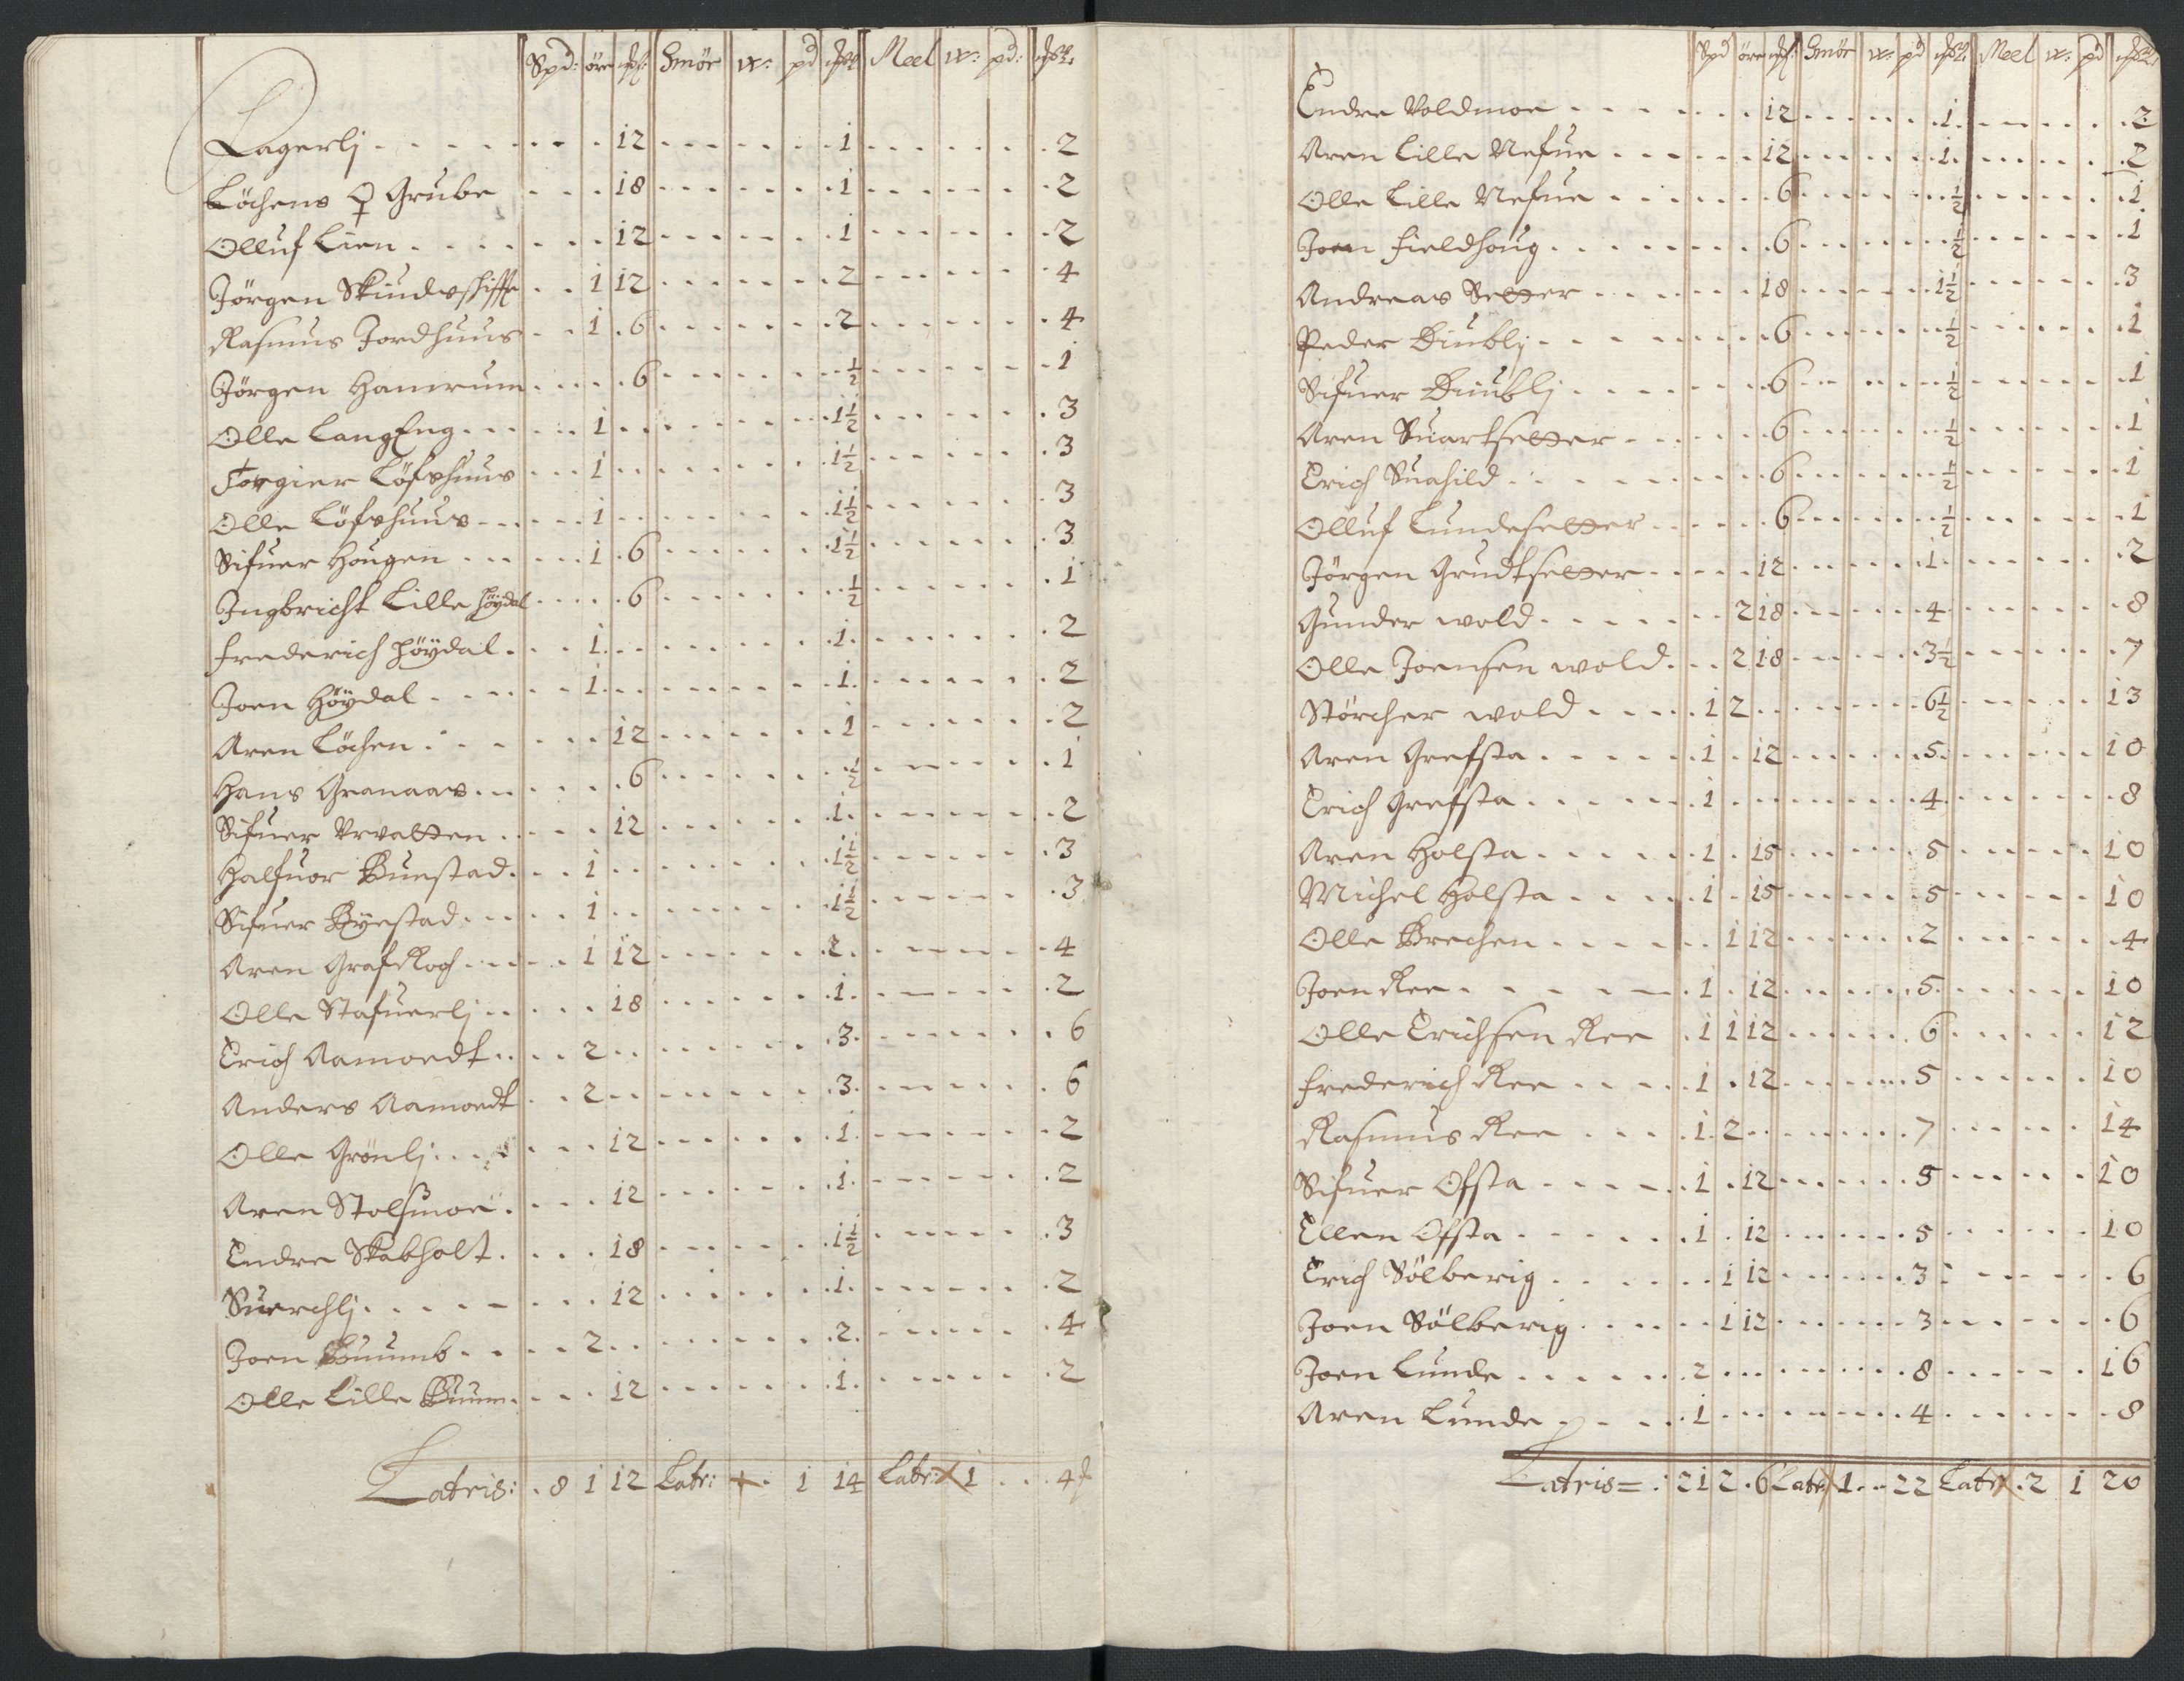 Spd: öre Smör w: pd Meel w: pd:
Lagerlj . . . 12 . . . 1 . . . 2
Löchens Grube . . . 18 . . . 1 . . . 2
Olluf Lien . . . 12 . . . 1 . . . 2
Jörgen . . . 1 12 . . . 2 . . . 4
Rasmus Jordhuus . . . 1 . 6 . . . 2 . . . 4
Jörgen Hamrum . . . 6 . . . ½ . . . 1
Olle LangEng . . . 1 . . . 1½ . . . 3
Torgier Löfshuus . . . 1 . . . 1½ . . . 3
Olle Löfshuus . . . 1 . . . 1½ . . . 3
Sifuer Hougen . . . 1 . 6 . . . 1½ . . . 3
Ingbricht Lille Höydal . . . 6 . . . ½ . . . 1
Frederich Höydal . . . 1 . . . 1 . . . 2
Joen Höydal . . . 1 . . . 1 . . . 2
Aren Löchen . . . 12 . . . 1 . . . 2
Hans Granaas . . . 6 . . . ½ . . . 1
Sifuer Urvatten . . . 12 . . . 1 . . . 2
Halfuor Buestad . . . 1 . . . 1½ . . . 3
Sifuer Byestad . . . 1 . . . 1½ . . . 3
Aren GrafRoch . . . 1 12 . . . 2 . . . 4
Olle Stafuerlj . . . 18 . . . 1 . . . 2
Erich Aamoedt . . . 2 . . . 3 . . . 6
Anders Aamoedt . . . 2 . . . 3 . . . 6
Olle Grönlj . . . 12 . . . 1 . . . 2
Aren Stolsmoe . . . 12 . . . 1 . . . 2
Endre Skabholt . . . 18 . . . 1½ . . . 3
Suerchlj . . . 12 . . . 1 . . . 2
Joen Buumb . . . 2 . . . 2 . . . 4
Olle Lille Buum . . . 12 . . . 1 . . . 2
Latris: . 8 1 12 Latr: . 1 14 Latr: 1 . . . 4
Spd öre Smör w: pd Meel w: pd
Endre Voldmoe . . . 12 . . . 1 . . . 2
Aren Lille Nefue . . . 12 . . . 1 . . . 2
Olle Lille Nefue . . . 6 . . . ½ . . . 1
Joen Fieldhoug . . . 6 . . . ½ . . . 1
Andreas Setter . . . 18 . . . 1½ . . . 3
Peder Diublj . . . 6 . . . ½ . . . 1
Sifuer Diublj . . . 6 . . . ½ . . . 1
Aren Suartsetter . . . 6 . . . ½ . . . 1
Erich Suahild . . . 6 . . . ½ . . . 1
Olluf Lundesetter . . . 6 . . . ½ . . . 1
Jörgen Grudtsetter . . . 12 . . . 1 . . . 2
Gunder wold . . . 2 18 . . . 4 . . . 8
Olle Joensen wold . . . 2 18 . . . 3½ . . . 7
Störcher wold . . . 1 2 . . . 6½ . . . 13
Aren Grefsta . . . 1 . 12 . . . 5 . . . 10
Erich Grefsta . . . 1 . . . 4 . . . 8
Aren Holsta . . . 1 . 15 . . . 5 . . . 10
Michel Holsta . . . 1 . 15 . . . 5 . . . 10
Olle Brechen . . . 1 12 . . . 2 . . . 4
Joen Ree . . . 1 . 12 . . . 5 . . . 10
Olle Erichsen Ree . 1 1 12 . . . 6 . . . 12
Frederich Ree . . . 1 . 12 . . . 5 . . . 10
Rasmus Ree . . . 1 2 . . . 7 . . . 14
Sifuer Ofsta . . . 1 . 12 . . . 5 . . . 10
Ellen Ofsta . . . 1 . 12 . . . 5 . . . 10
Erich Sölberig . . . 1 12 . . . 3 . . . 6
Joen Sölberig . . . 1 12 . . . 3 . . . 6
Joen Lunde . . . 2 . . . 8 . . . 16
Aren Lunde . . . 1 . . . 4 . . . 8
Latris = : 21 2 . 6 Latr 1 . . 22 Latr . 2 1 20